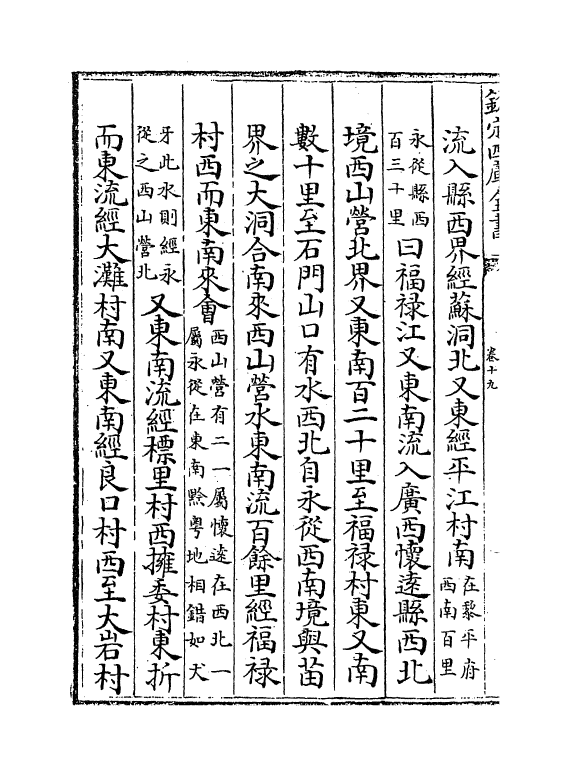 欽定四庫全書
卷十九
流入縣西界經蘇洞北又東經平江村南在黎平府西南百里
永從縣西百三十里曰福禄江又東南流入廣西懷逺縣西北
境西山營北界又東南百二十里至福禄村東又南
數十里至石門山口有水西北自永從西南境與苗
界之大洞合南來西山營水東南流百餘里經福禄
村西而東南來會西山營有二一屬懷逺在西北一屬永從在東南黔粤地相錯如犬
牙此水則經永從之西山營北又東南流經標里村西擁委村東折
而東流經大灘村南又東南經良口村西至大岩村